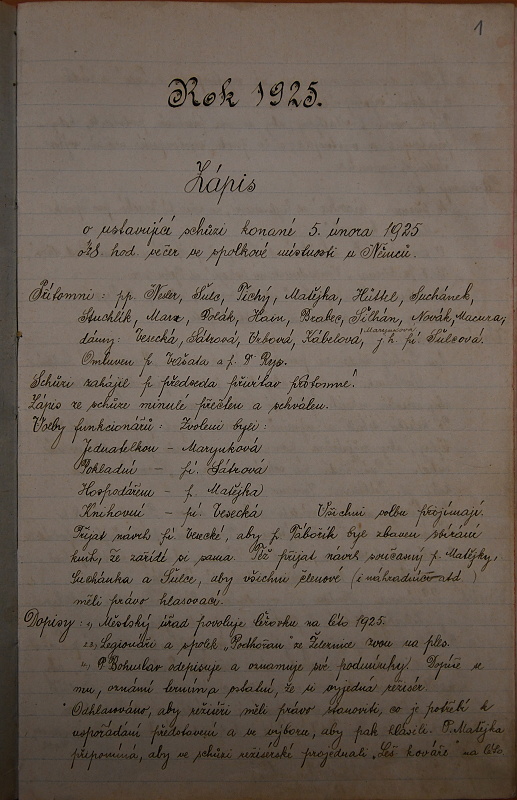 1
Rok 1925.
Zápis
o ustavující schůzi konané 5. února 1925
o ½8. hod. večer ve spolkové místnosti u Němců.
Přítomni: pp. Šulc, Tichý, Matějka, Hüttel, Suchánek,
Stuchlík, Marx, Polák, Hain, Brabec, Šilhán, Novák, Macura,
Marynková
dámy: Vesecká, Šátrová, Vrbová, Kábelová, j. h. sl. Šulcová.
Omluven p. a p. Dr
Schůzi zahájil p. předseda přivítav přítomné.
Zápis ze schůze minulé přečten a schválen.
Volby funkcionářů: Zvoleni byli:
Jednatelkou – Marynková
Pokladní – sl. Šátrová
Hospodářem – p. Matějka
Knihovní – sl. Vesecká Všichni volbu přijímají.
Přijat návrh sl. Vesecké, aby p. Táborik byl zbaven sbírání
knih, že zařídí se sama. Též přijat návrh současný p. Matějky,
Suchánka a Šulce, aby všichni členové (i náhradníci atd.)
měli právo hlasovací.
Dopisy: 1) Městský úřad povoluje Cerovku na léto 1925.
2) Legionáři a spolek „Podhořan" ze Želernice zvou na ples.
3) P. Bohuslav odepisuje a oznamuje své podmínky. Dopíše se
mu, oznámí termín a ostatní, že si vyjedná režisér.
Odhlasováno, aby režiséři měli právo stanoviti, co je potřebí k
uspořádání představení a ve výboru, aby pak hlásili. P. Matějka
připomíná, aby ve schůzi režisérské projednali „Leš kováře" na léto